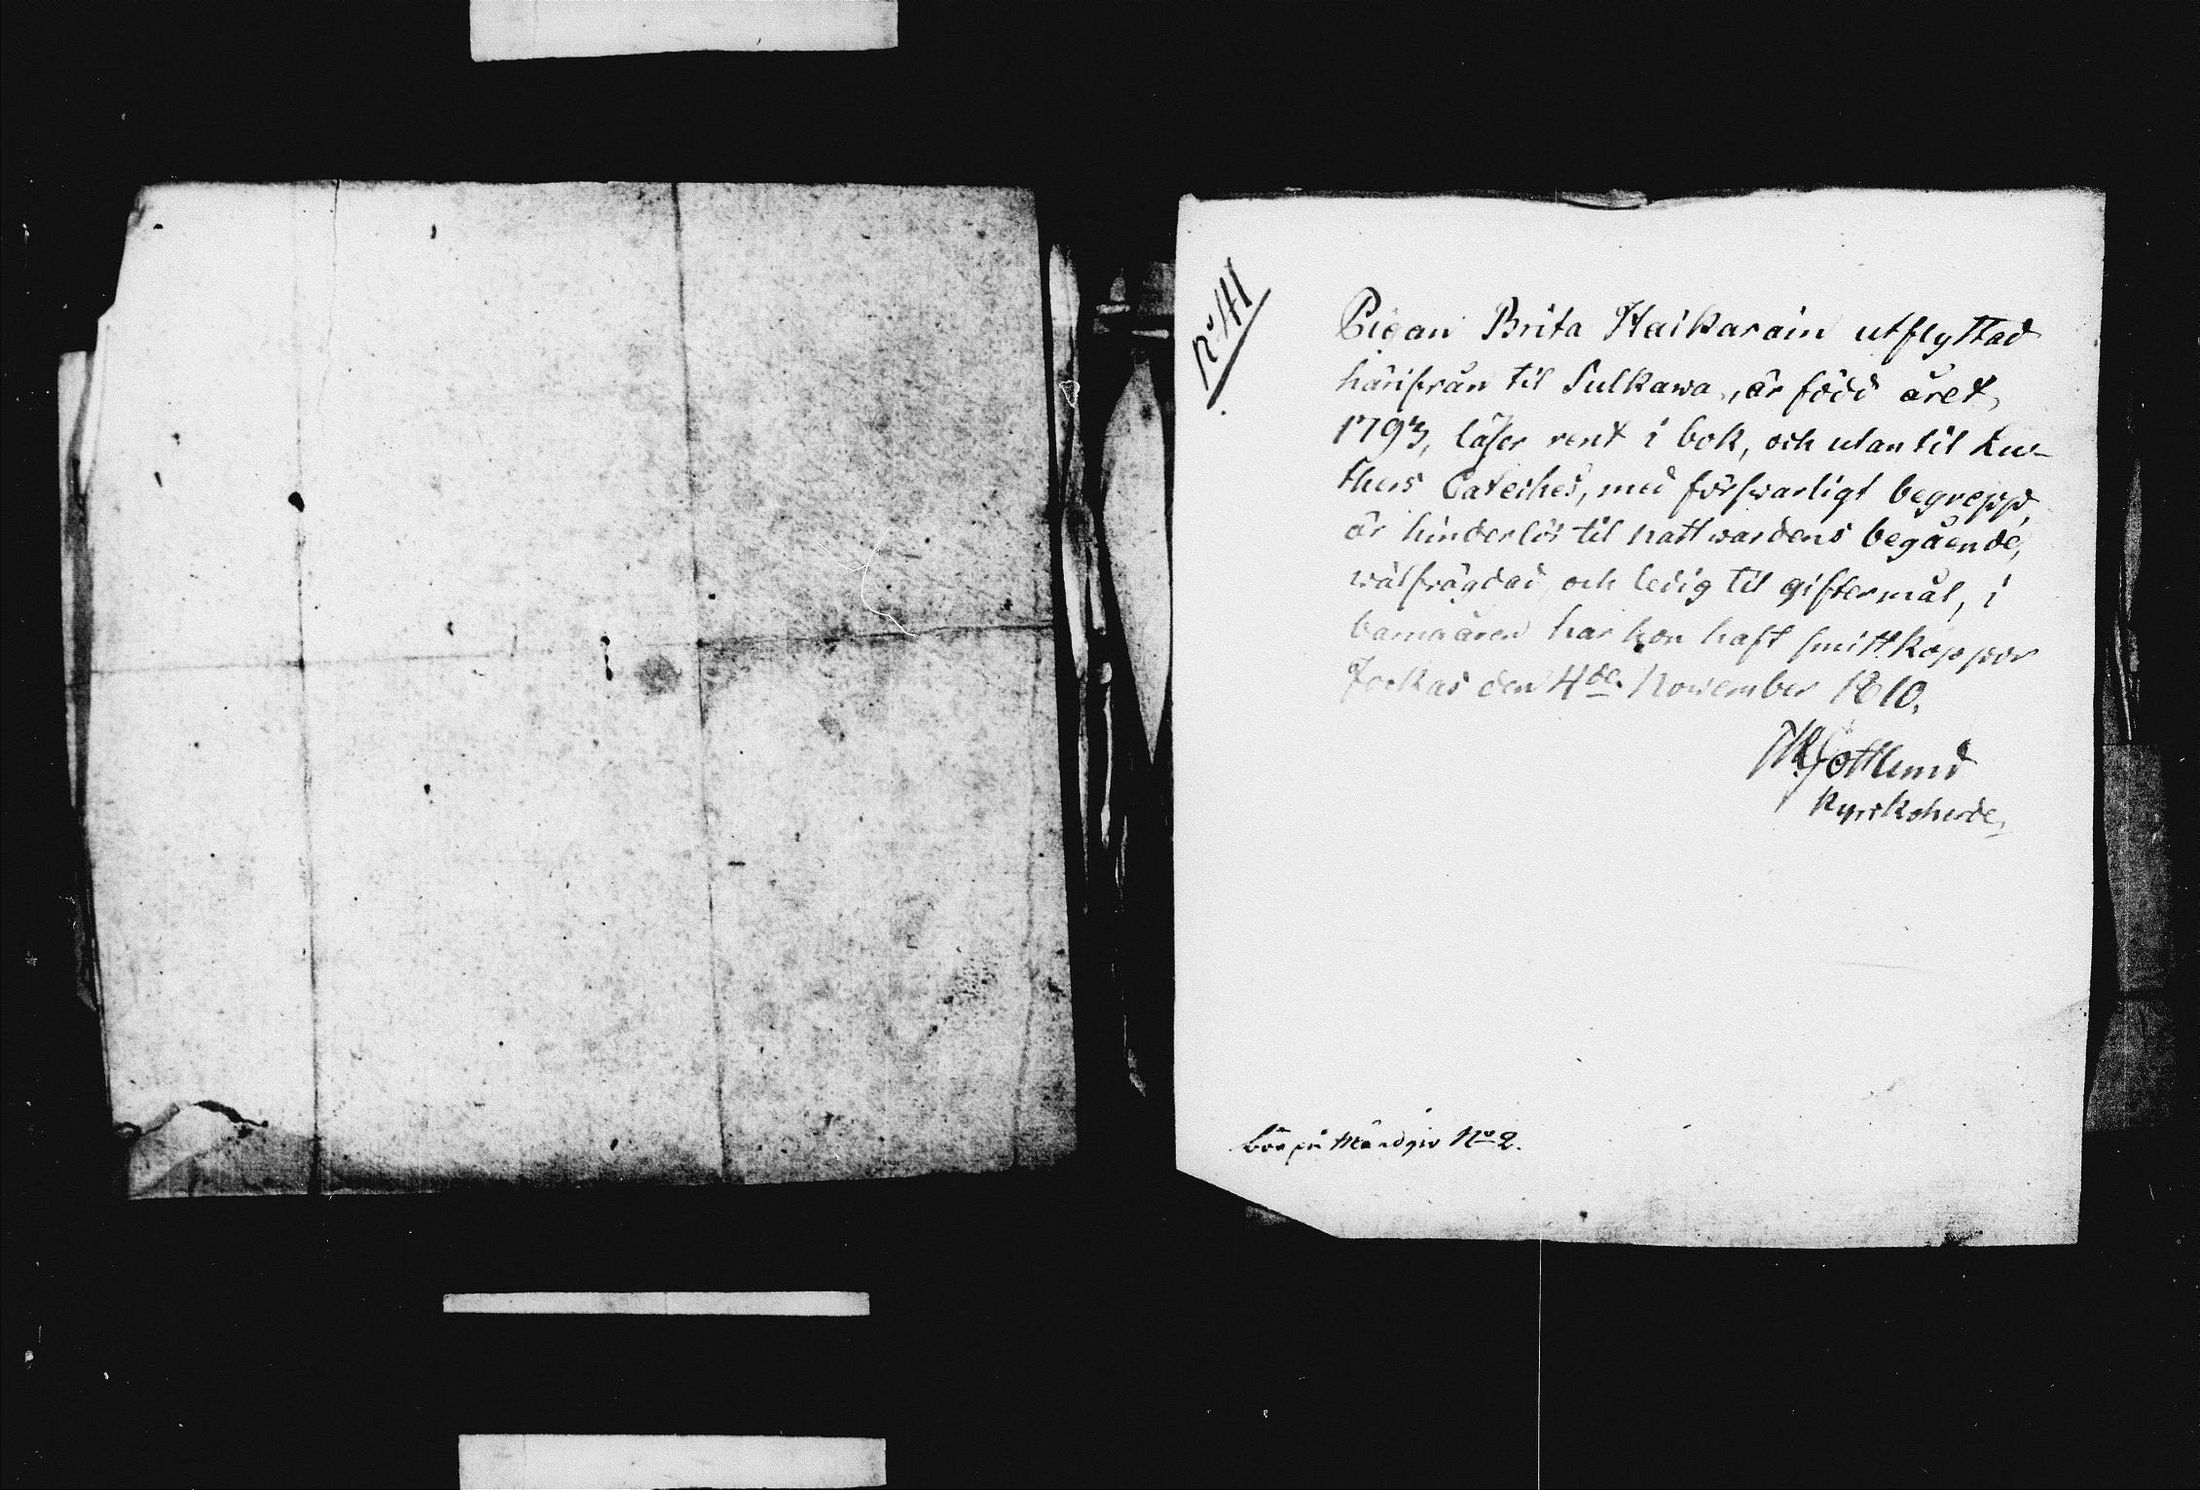 No 41
Pigan Brita Haikarain utflyttad
härifrån til Sulkawa, är född året
1793, läser rent i bok, och utan til Lu-
thers Cateches, med förswarligt begrepp,
är hinderlös til nattwardens begående,
wälfrägdad och ledig til giftermål, i
barnaåren har hon haft smittkoppor
Jockas den 4de November 1810.
Gottlund
Kyrckoherde,
No 2.